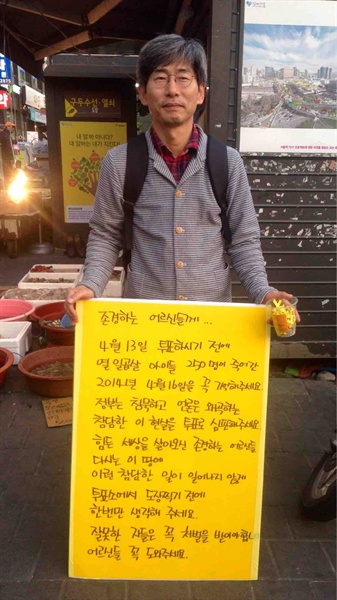 구두수선·열쇠
내 말 하는데
존경하는 어르신들께...
4월 13일 투표하시기 전에
열 일곱살 아이들 250명이 죽어간
2014년 4월 16일을 꼭 기억해주세요.
정부는 침묵하고 언론은 왜곡하는
참담한 이 현실을 투표로 심판해주세요.
힘든 세상을 살아오신 존경하는 어르신들
다시는 이 땅에
이런 참담한 일이 일어나지 않게
투표소에서 도장찍기 전에
한번만 생각해 주세요.
잘못한 자들은 꼭 처벌을 받아야 합니다.
어르신들 꼭 도와주세요.